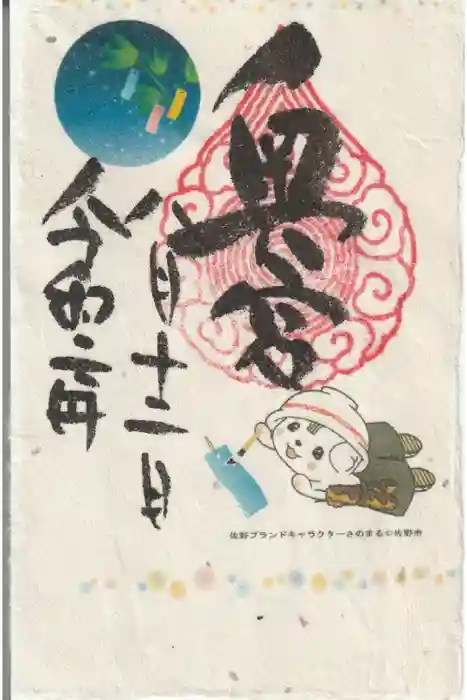 奥宮
月十二日
令和
佐野ブランドキャラクターさのまる©佐野市